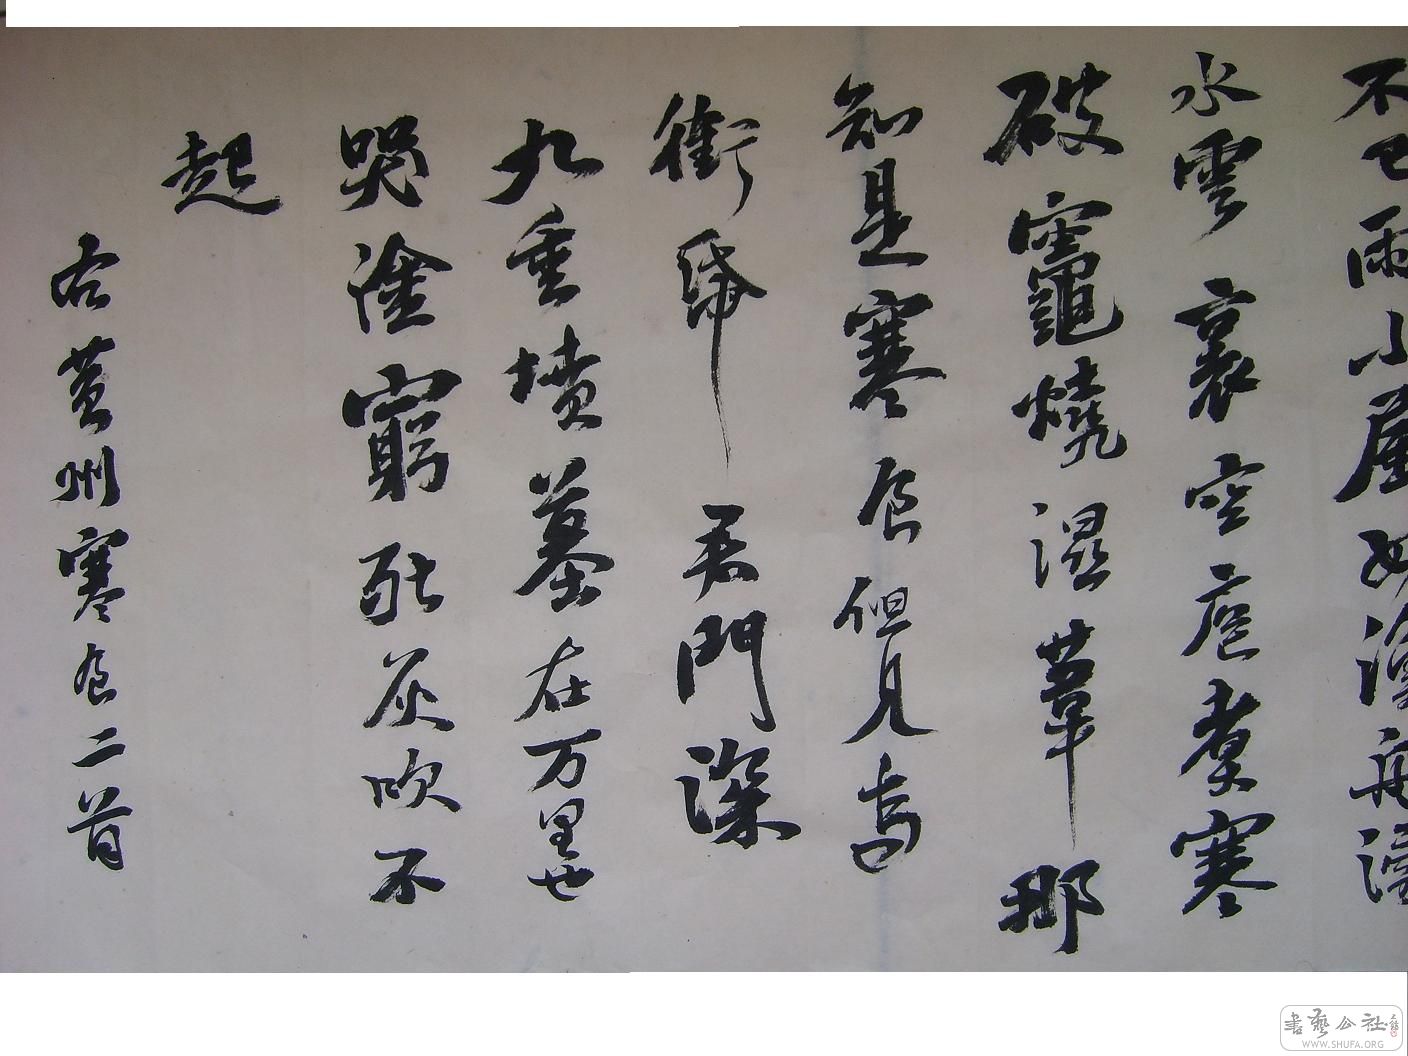 不已雨小屋如漁舟濛
水雲裏空庖煮寒
破竈燒濕葦那
知是寒食但見烏
銜帋君門深
九重墳墓在万里也
哭塗窮死灰吹不
起
右黃州寒食二首
書藝公社
WWW.SHUFA.ORG